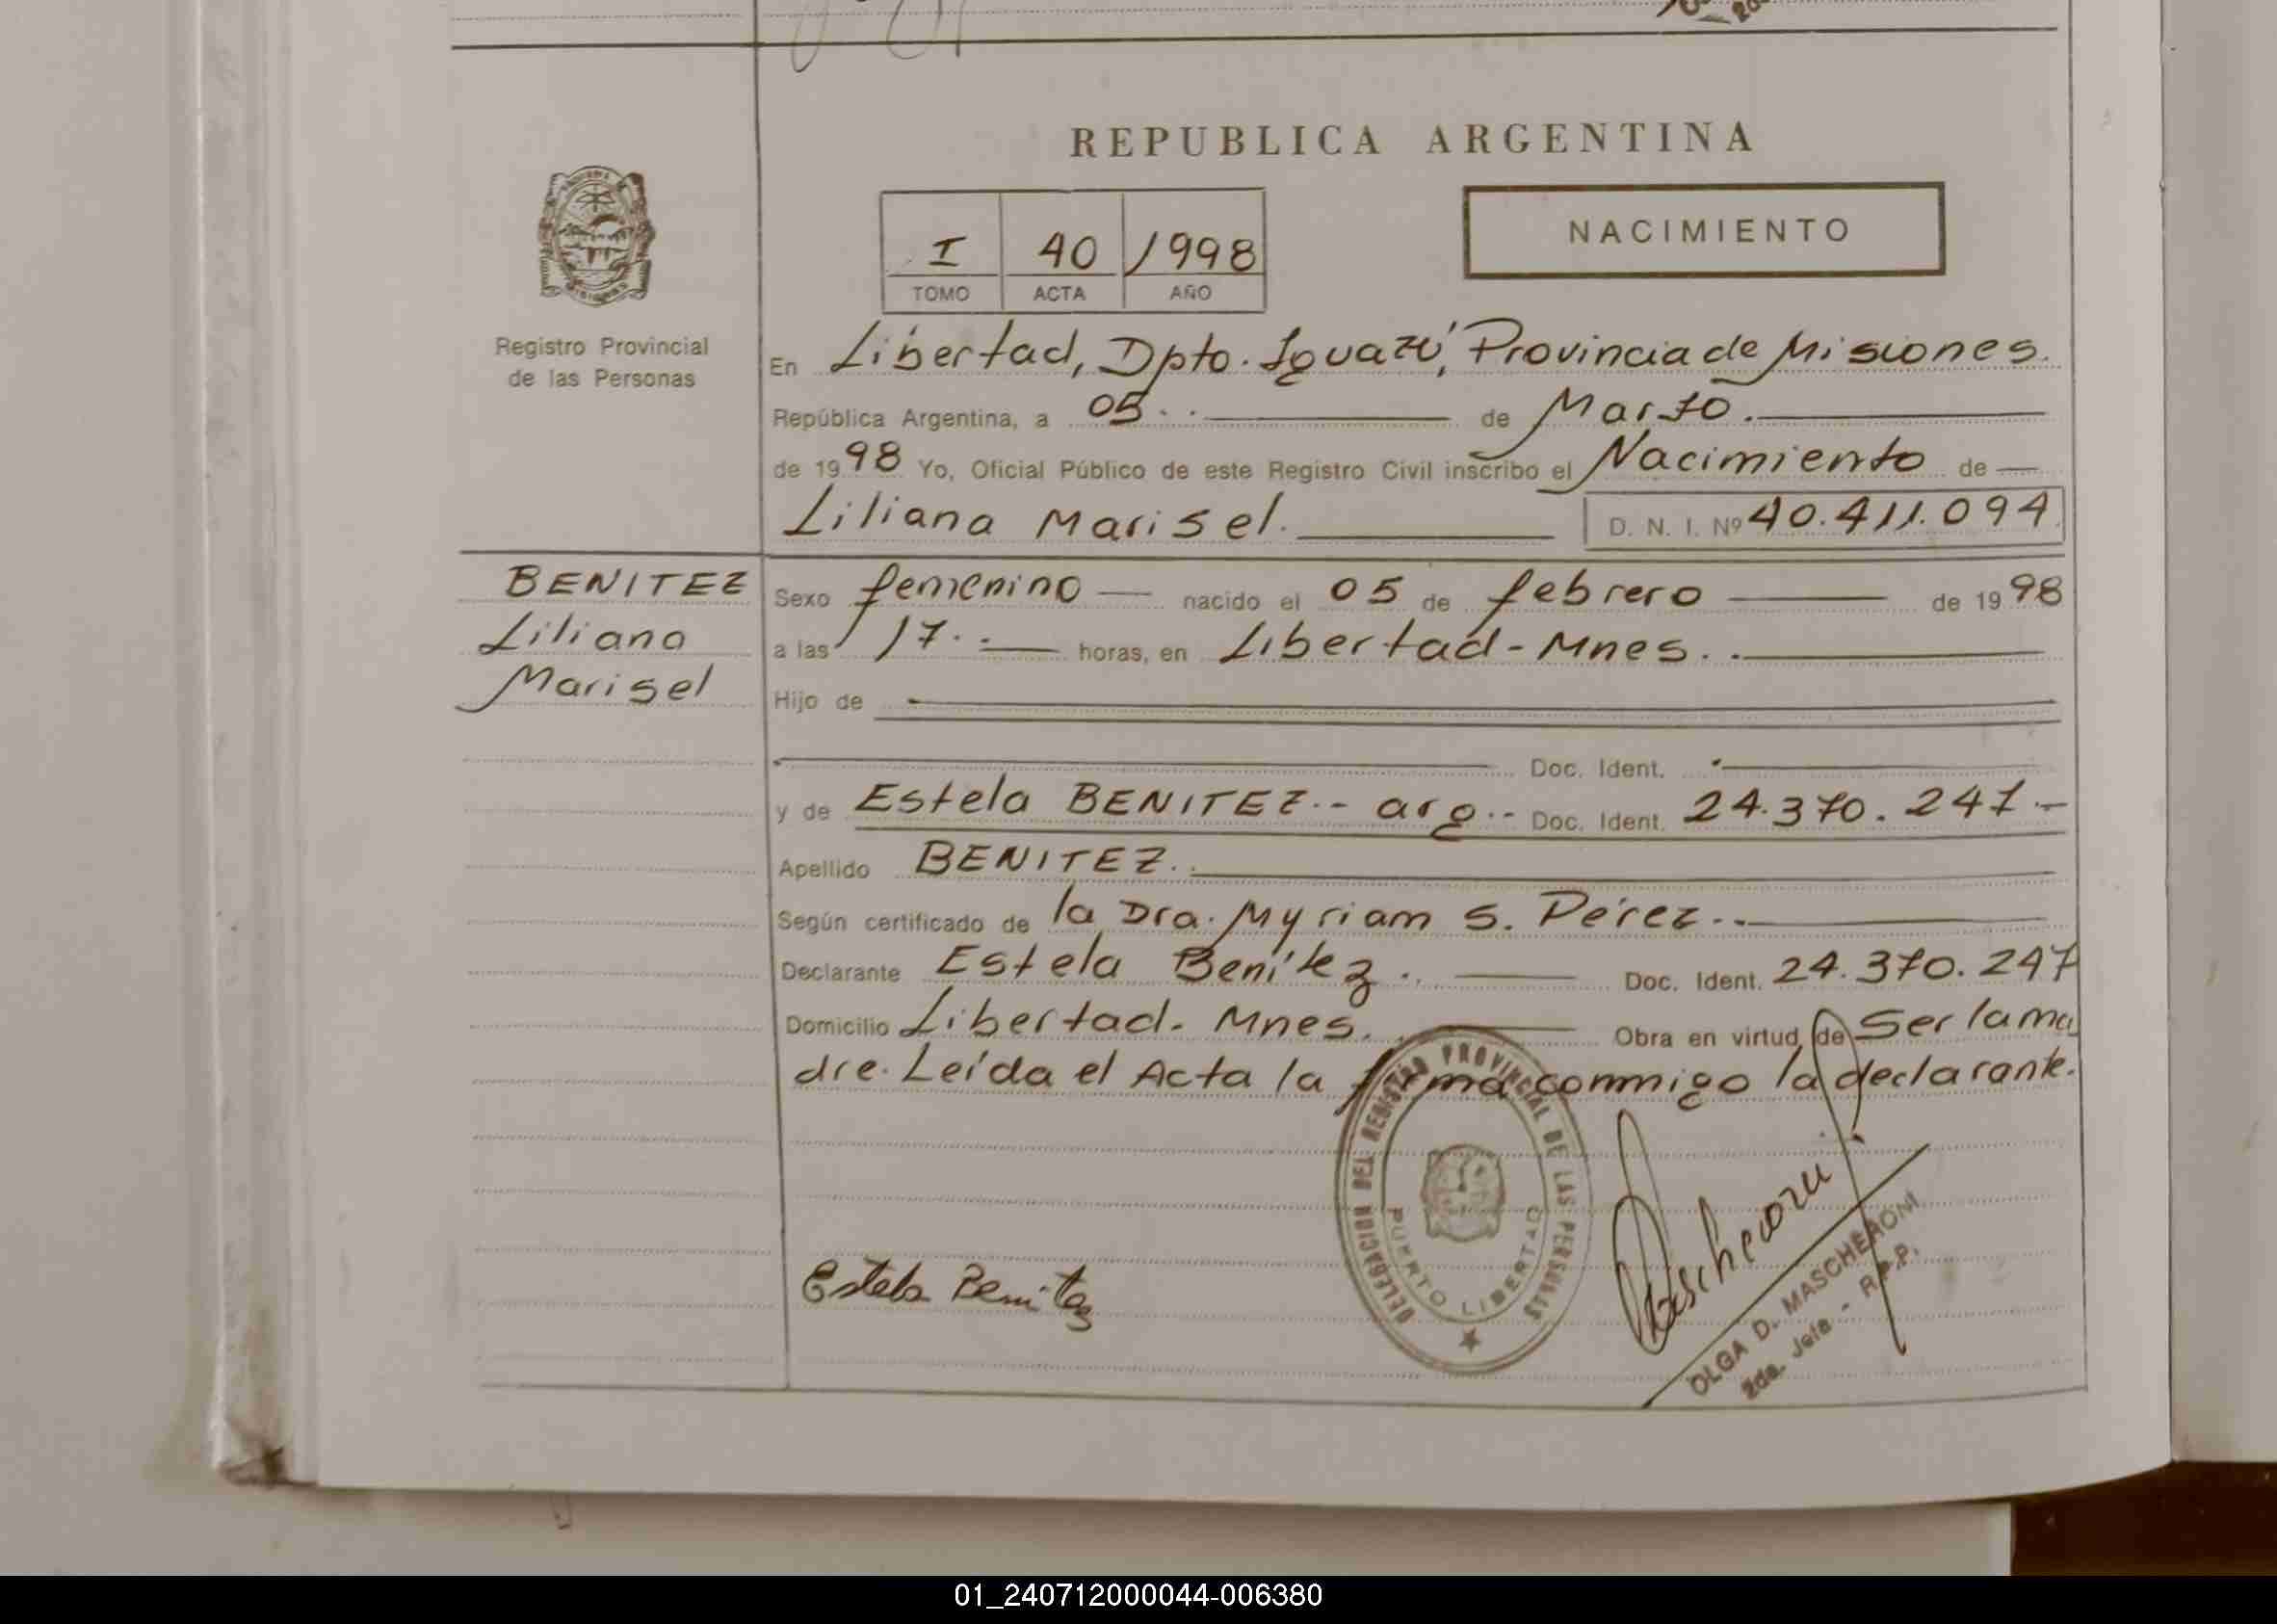 REPUBLICA ARGENTINA
I 40 1998
TOMO ACTA AÑO
NACIMIENTO
Registro Provincial
de las Personas
En Libertad, Dpto. Iguazú, Provincia de Misiones.
República Argentina, a 05.. de Marzo.
de 1998 Yo, Oficial Público de este Registro Civil inscribo el Nacimiento de
Liliana Marisel. D. N. I. Nº 40.411.094
BENITEZ
Liliana
Marisel
Sexo femenino nacido el 05 de febrero de 1998
a las 17.- horas, en Libertad-Mnes..
Hijo de
Doc. Ident.
y de Estela BENITEZ.- arg.- Doc. Ident. 24.370.247.-
Apellido BENITEZ.
Según certificado de la Dra. Myriam S. Pérez..
Declarante Estela Benítez. Doc. Ident. 24.370.247
Domicilio Libertad. Mnes. Obra en virtud de Ser la ma
dre. Leída el Acta la firma conmigo la declarante.
DELEGACION DEL REGISTRO PROVINCIAL DE LAS PERSONAS
PUERTO LIBERTAD
Estela Benitez
OLGA D. MASCHERONI
2da. Jefa - R.P.P.
01_240712000044-006380